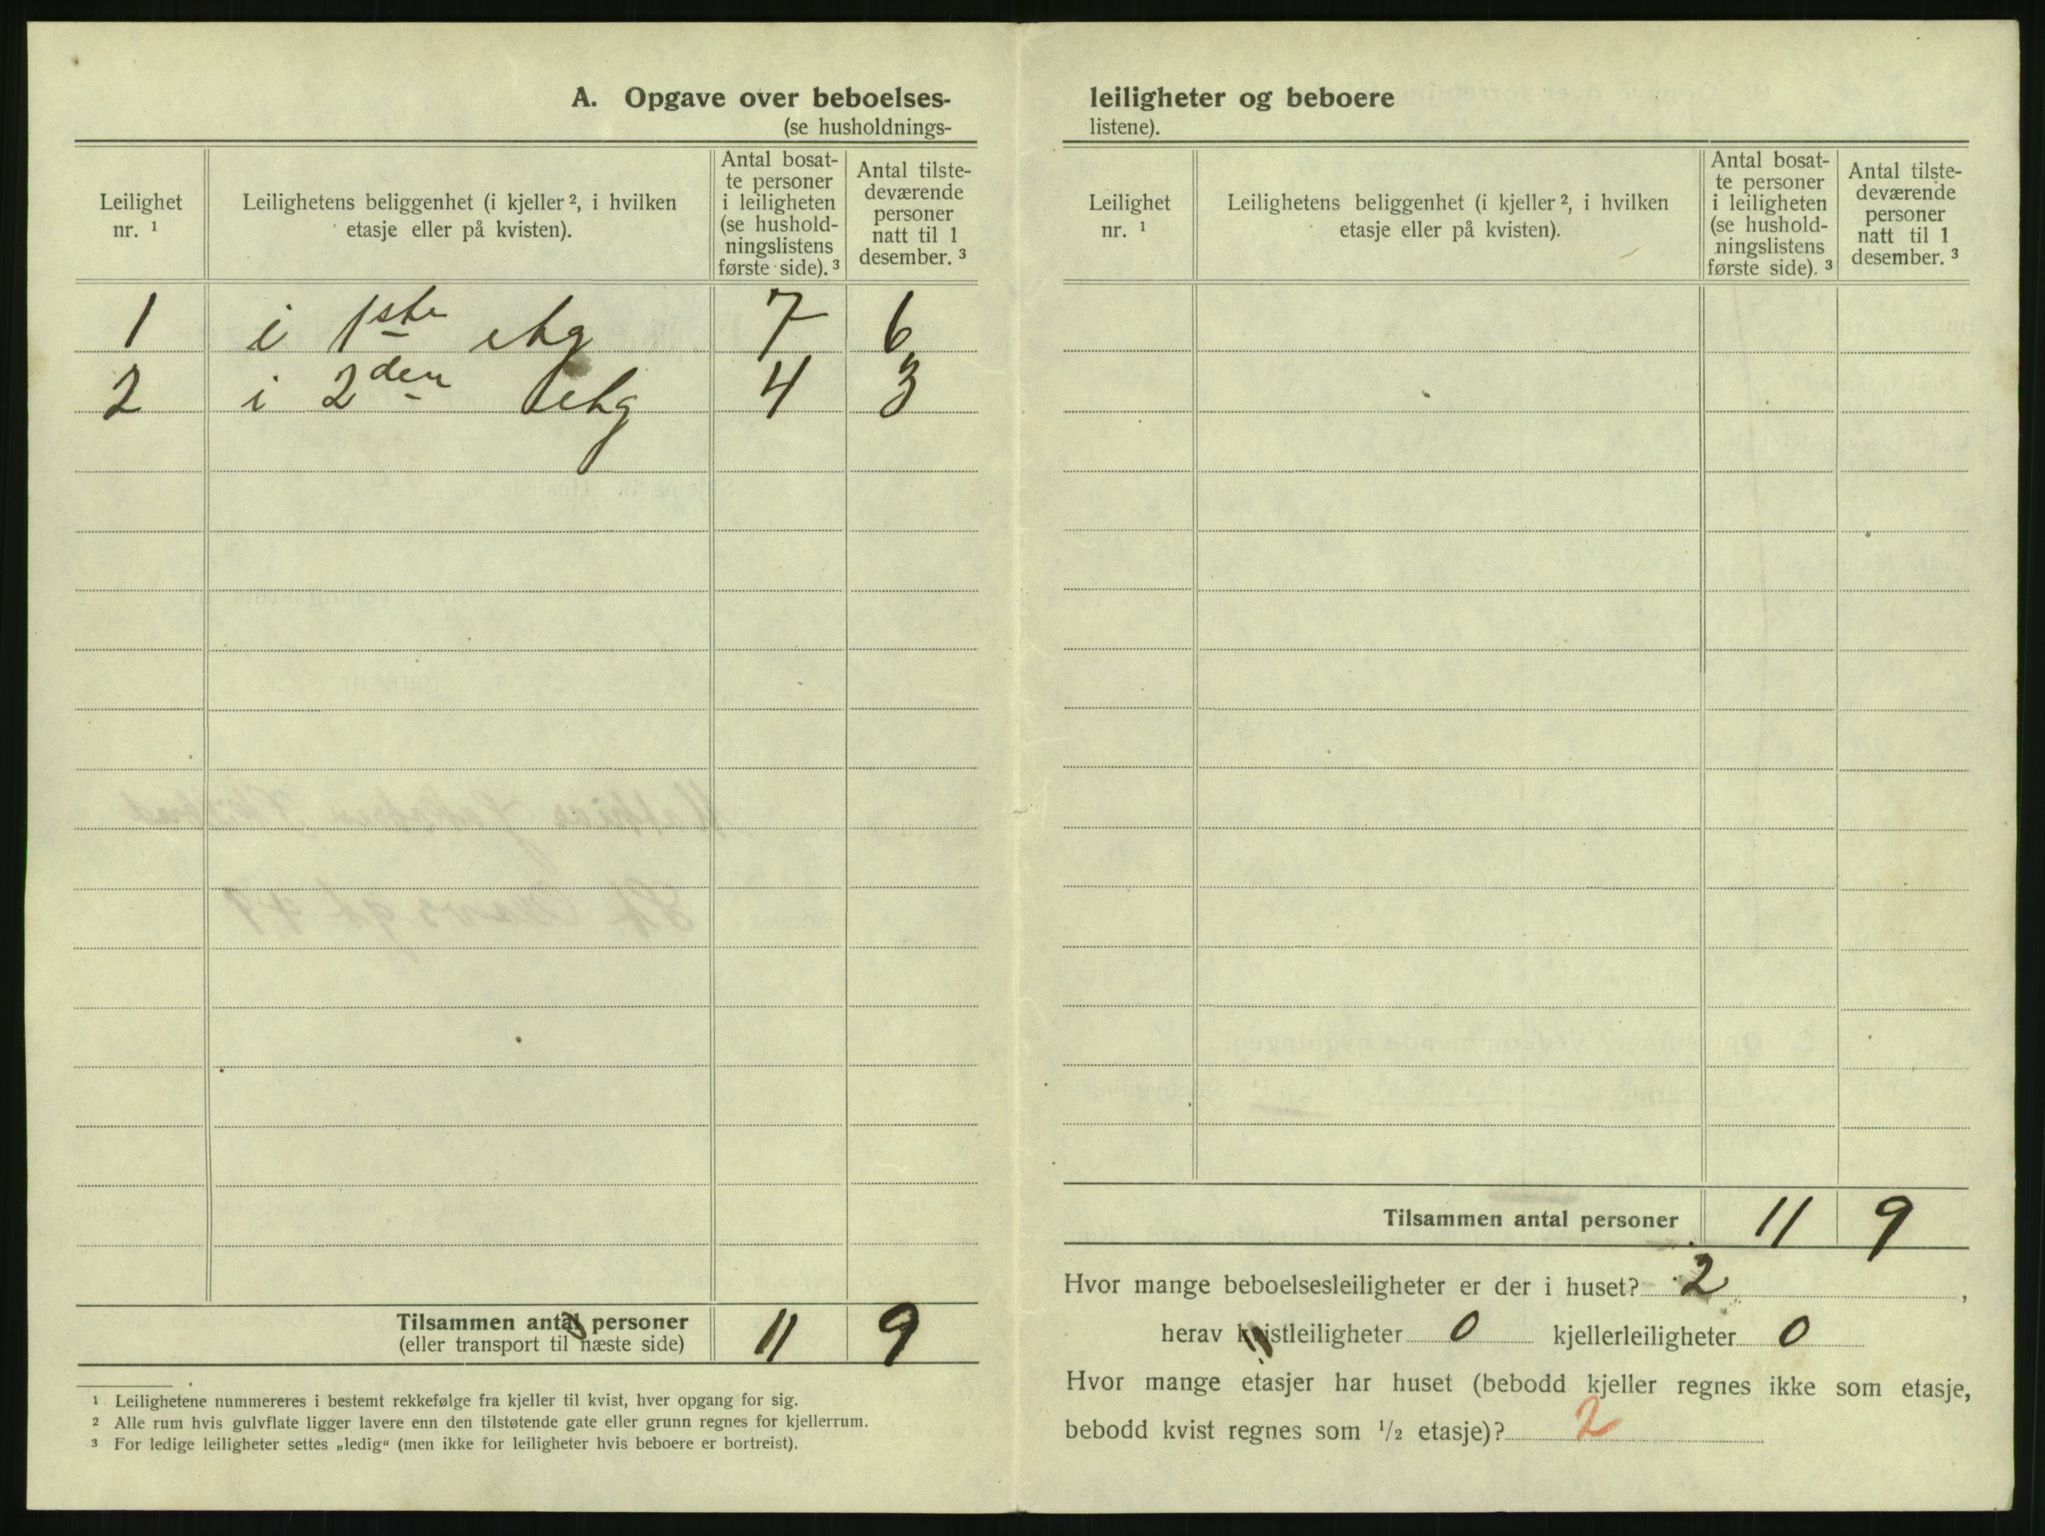 A. Opgave over beboelses-
(se husholdnings-
Leilighet nr. ¹
Leilighetens beliggenhet (i kjeller ², i hvilken etasje eller på kvisten).
Antal bosat-
te personer
i leiligheten
(se hushold-
ningslistens
første side). ³
Antal tilste-
deværende
personer
natt til 1
desember. ³
1 i 1ste etg 7 6
2 i 2den etg 4 3
Tilsammen antal personer 11 9
(eller transport til næste side)
¹ Leilighetene nummereres i bestemt rekkefølge fra kjeller til kvist, hver opgang for sig.
² Alle rum hvis gulvflate ligger lavere enn den tilstøtende gate eller grunn regnes for kjellerrum.
³ For ledige leiligheter settes „ledig“ (men ikke for leiligheter hvis beboere er bortreist).
leiligheter og beboere
listene).
Leilighet nr. ¹
Leilighetens beliggenhet (i kjeller ², i hvilken etasje eller på kvisten).
Antal bosat-
te personer
i leiligheten
(se hushold-
ningslistens
første side). ³
Antal tilste-
deværende
personer
natt til 1
desember. ³
Tilsammen antal personer 11 9
Hvor mange beboelsesleiligheter er der i huset? 2,
herav kvistleiligheter 0 kjellerleiligheter 0
Hvor mange etasjer har huset (bebodd kjeller regnes ikke som etasje,
bebodd kvist regnes som ½ etasje)? 2